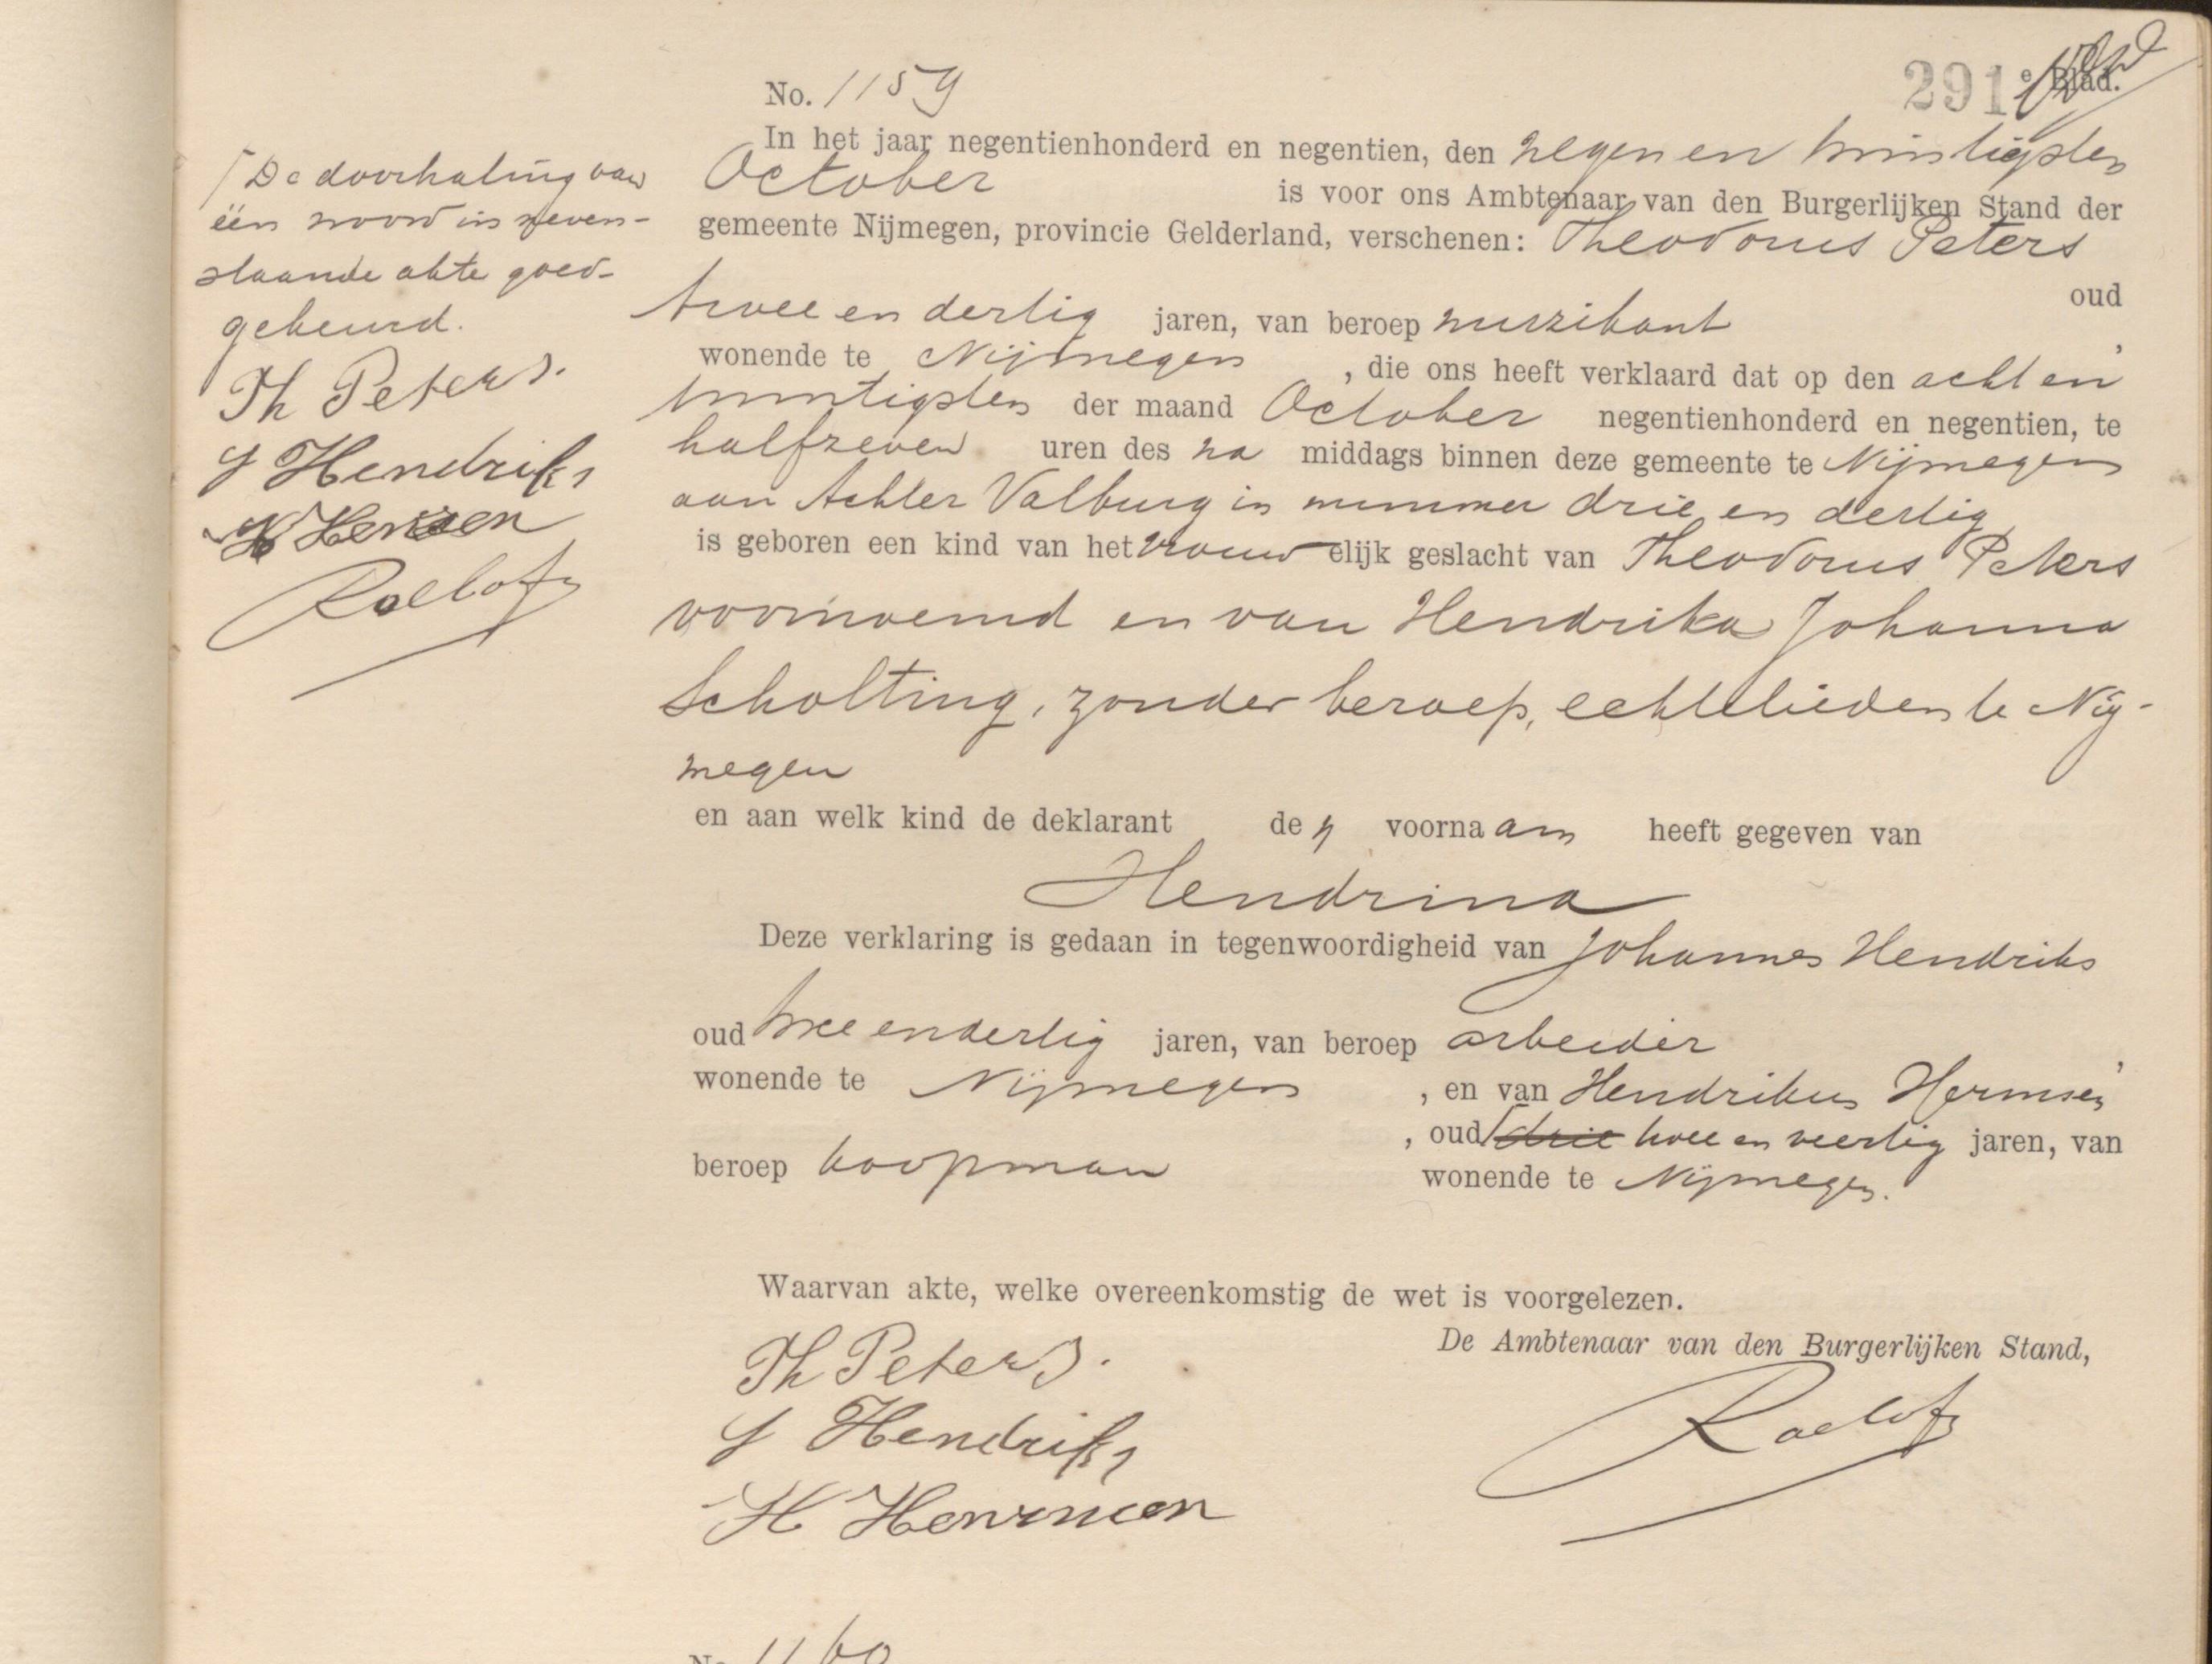 291e Blad.
No. 1159
In het jaar negentienhonderd en negentien, den negen en twintigsten
October is voor ons Ambtenaar van den Burgerlijken Stand der
gemeente Nijmegen, provincie Gelderland, verschenen: Theodorus Peters
oud
twee en dertig jaren, van beroep muzikant,
wonende te Nijmegen, die ons heeft verklaard dat op den acht en
twintigsten der maand October negentienhonderd en negentien, te
halfzeven uren des na middags binnen deze gemeente te Nijmegen
aan Achter Valburg in nummer drie en dertig
is geboren een kind van het vrouwelijk geslacht van Theodorus Peters
voornoemd en van Hendrika Johanna
Scholting, zonder beroep, echtelieden te Nij-
megen
en aan welk kind de deklarant den voornaam heeft gegeven van
Hendrina
Deze verklaring is gedaan in tegenwoordigheid van Johannes Hendriks
oud twee en dertig jaren, van beroep arbeider,
wonende te Nijmegen, en van Hendrikus Hermsen
, oud drie twee en veertig jaren, van
beroep koopman wonende te Nijmegen.
Waarvan akte, welke overeenkomstig de wet is voorgelezen.
De Ambtenaar van den Burgerlijken Stand,
Th Peters.
J Hendriks
H Hermsen
Roelofs
De doorhaling van
één woord in neven-
staande akte goed-
gekeurd.
Th Peters.
J Hendriks
H Hermsen
Roelofs
No. 1160